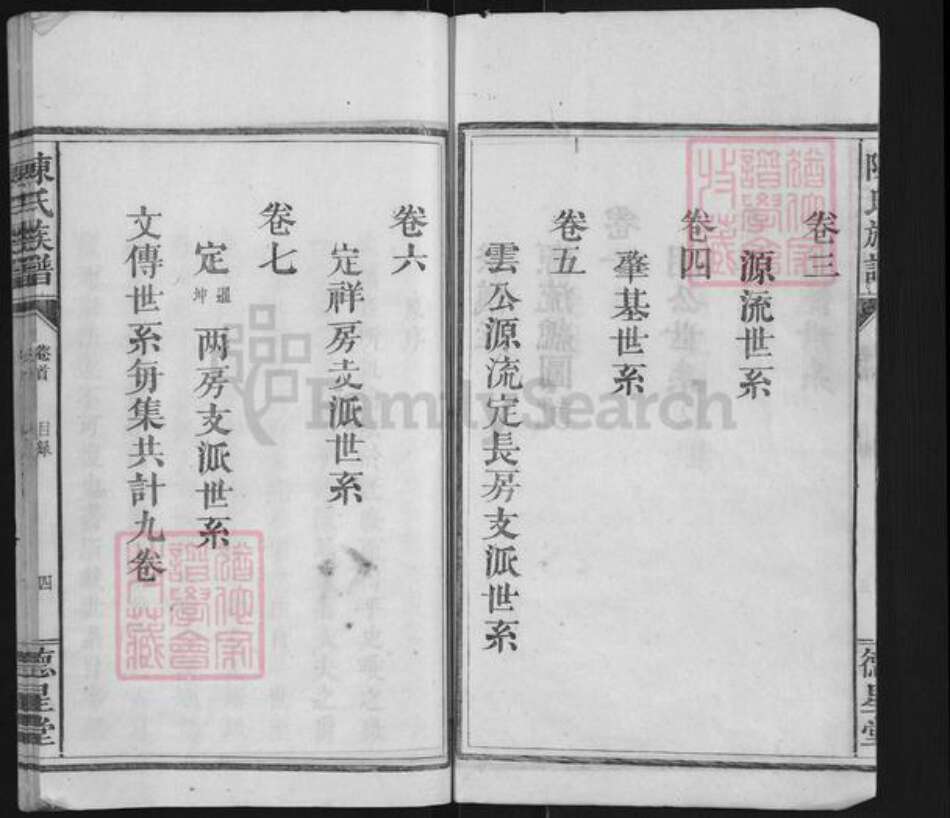 卷三
源流世系
卷四
肇基世系
卷五
雲公源流定長房支派世系
卷六
定祥房支派世系
卷七
定
坤
兩房支派世系
文傳世系每集共計九卷
陳氏族譜
卷首
目録
四
德星堂
陳氏族譜
德星堂
猶他家譜學會收藏
猶他家譜學會收藏
FamilySearch